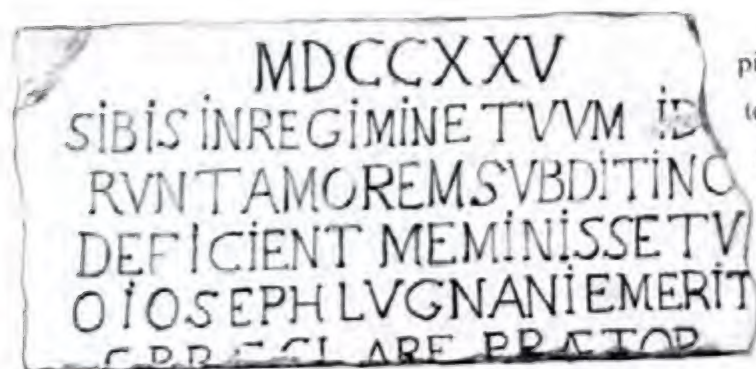 MDCCXXV
SİBİS İNREGİMİNE TVVM İD pi
RVNTAMOREMSVBDİTİNC (
DEFİCİENT MEMİNİSSETV
OİOSEPHLVGNANİEMERİT
ARE PRÆTOR